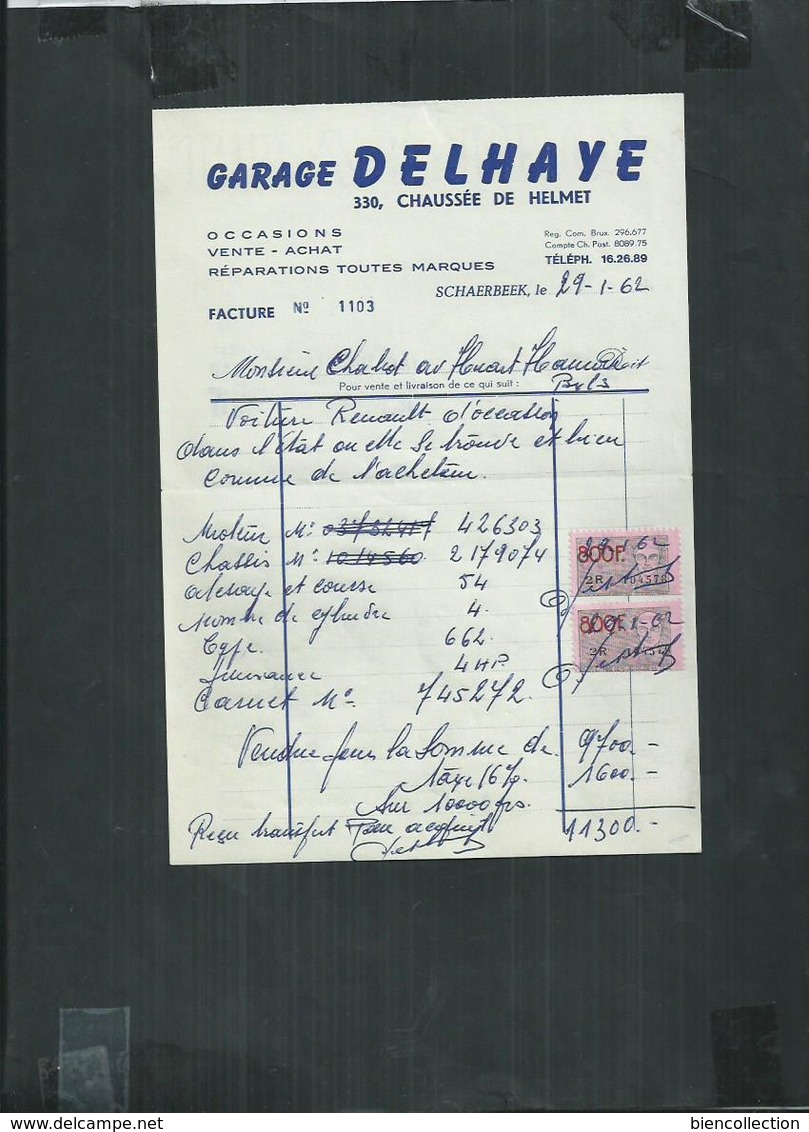 GARAGE DELHAYE
330, CHAUSSÉE DE HELMET
OCCASIONS
VENTE - ACHAT
RÉPARATIONS TOUTES MARQUES
Reg. Com. Brux. 296.677
Compte Ch. Post. 8089.75
TÉLÉPH. 16.26.89
SCHAERBEEK, le 29-1-62
FACTURE Nº 1103
Monsieur Chabot av Huart Hamoir Doit
Pour vente et livraison de ce qui suit :
Voiture Renault d'occasion
dans l'état ou elle se trouve et bien
connue de l'acheteur.
Moteur Nº 426303
Chassis Nº 2179074
alesage et course 54
Nombre de cylindre 4.
Type 662.
Puissance 4 HP
Carnet Nº 745272.
800F. 29-1-62
2R 04578
800F. 29-1-62
2R
Vendue pour la somme de 9700.-
taxe 16% 1600.-
Sur 10000 frs.
Reçu transfert Pour acquit 11300.-
biencollection